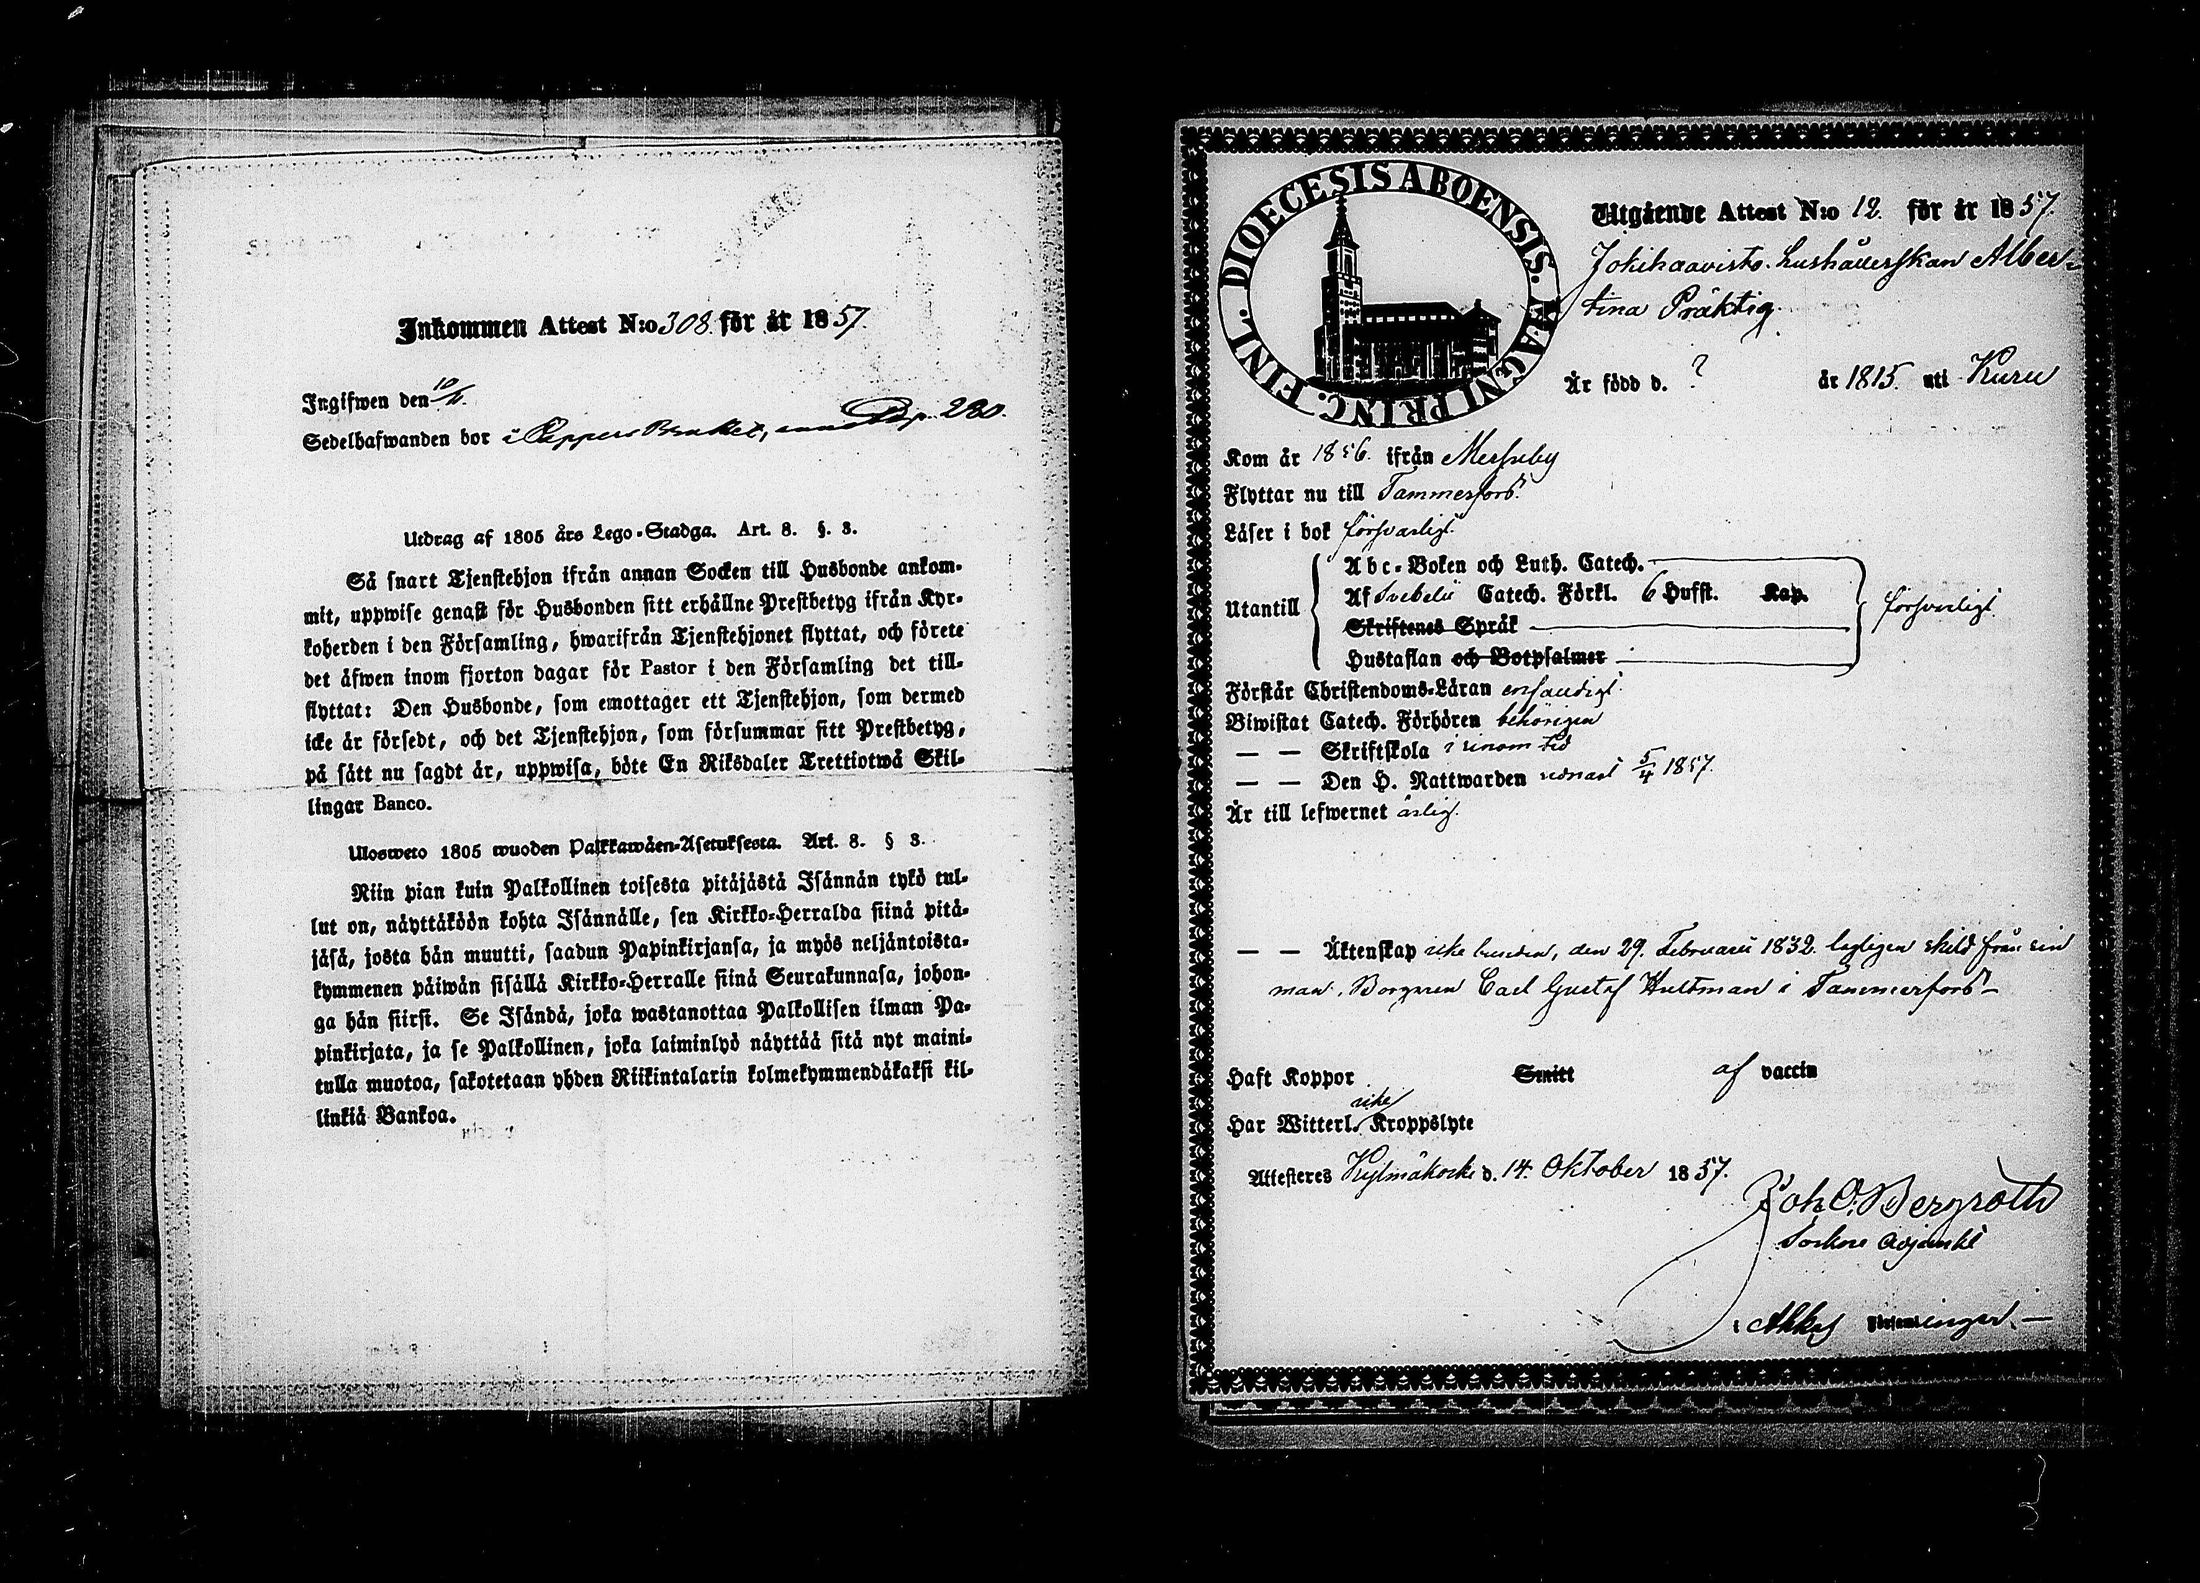 Inkommen Attest N:o 308. för år 1857.
Ingifwen den 10/11.
Sedelhafwanden bor i Peppers Bruket, Pag. 280.
Utdrag af 1805 års Lego-Stadga. Art. 8. §. 3.
Så snart Tjenstehjon ifrån annan Socken till Husbonde ankom-
mit, uppwise genast för Husbonden sitt erhållne Prestbetyg ifrån Kyr-
koherden i den Församling, hwarifrån Tjenstehjonet flyttat, och förete
det äfwen inom fjorton dagar för Pastor i den Församling det till-
flyttat: Den Husbonde, som emottager ett Tjenstehjon, som dermed
icke är försedt, och det Tjenstehjon, som försummar sitt Prestbetyg,
på sätt nu sagdt är, uppwisa, böte En Riksdaler Trettiotwå Skil-
lingar Banco.
Ulosweto 1805 wuoden Palkkawäen-Asetuksesta. Art. 8. § 3.
Niin pian kuin Palkollinen toisesta pitäjästä Isännän tykö tul-
lut on, näyttäköön kohta Isännälle, sen Kirkko-Herralda siinä pitä-
jäsä, josta hän muutti, saadun Papinkirjansa, ja myös neljäntoista-
kymmenen päiwän sisällä Kirkko-Herralle siinä Seurakunnasa, johon-
ga hän siirsi. Se Isändä, joka wastanottaa Palkollisen ilman Pa-
pinkirjata, ja se Palkollinen, joka laiminlyö näyttää sitä nyt maini-
tulla muotoa, sakotetaan yhden Riikintalarin kolmekymmendäkaksi kil-
linkiä Bankoa.
DIOECESIS ABOENSIS. MAGNI PRINC. FINL.
Utgående Attest N:o 12. för år 1857.
Jokihaavisto. hushållerskan Alber-
tina Präktig.
Är född d. ? år 1815. uti Kuru
Kom år 1856. ifrån Messuby
Flyttar nu till Tammerfors.
Läser i bok försvarligt.
Utantill
Abc-Boken och Luth. Catech.
Af Svebelii Catech. Förkl. 6 Hufst. Kap.
Skriftenes Språk
Hustaflan och Botpsalmer
försvarligt.
Förstår Christendoms-Läran enfaldigt.
Biwistat Catech. Förhören behörigen
— — Skriftskola i sinom tid
— — Den H. Nattwarden sednast 5/4 1857.
Är till lefwernet ärlig.
— — Äktenskap icke bunden, den 29. Februarii 1832. lagligen skild från sin
man, Borgaren Carl Gustaf Hultman i Tammerfors —
Haft Koppor Smitt af vaccin
Har Witterl. icke Kroppslyte
Attesteres Kylmäkoski d. 14. Oktober 1857.
Joh. O. Bergroth
Sockne Adjunkt
i Akkas Församlingar. —